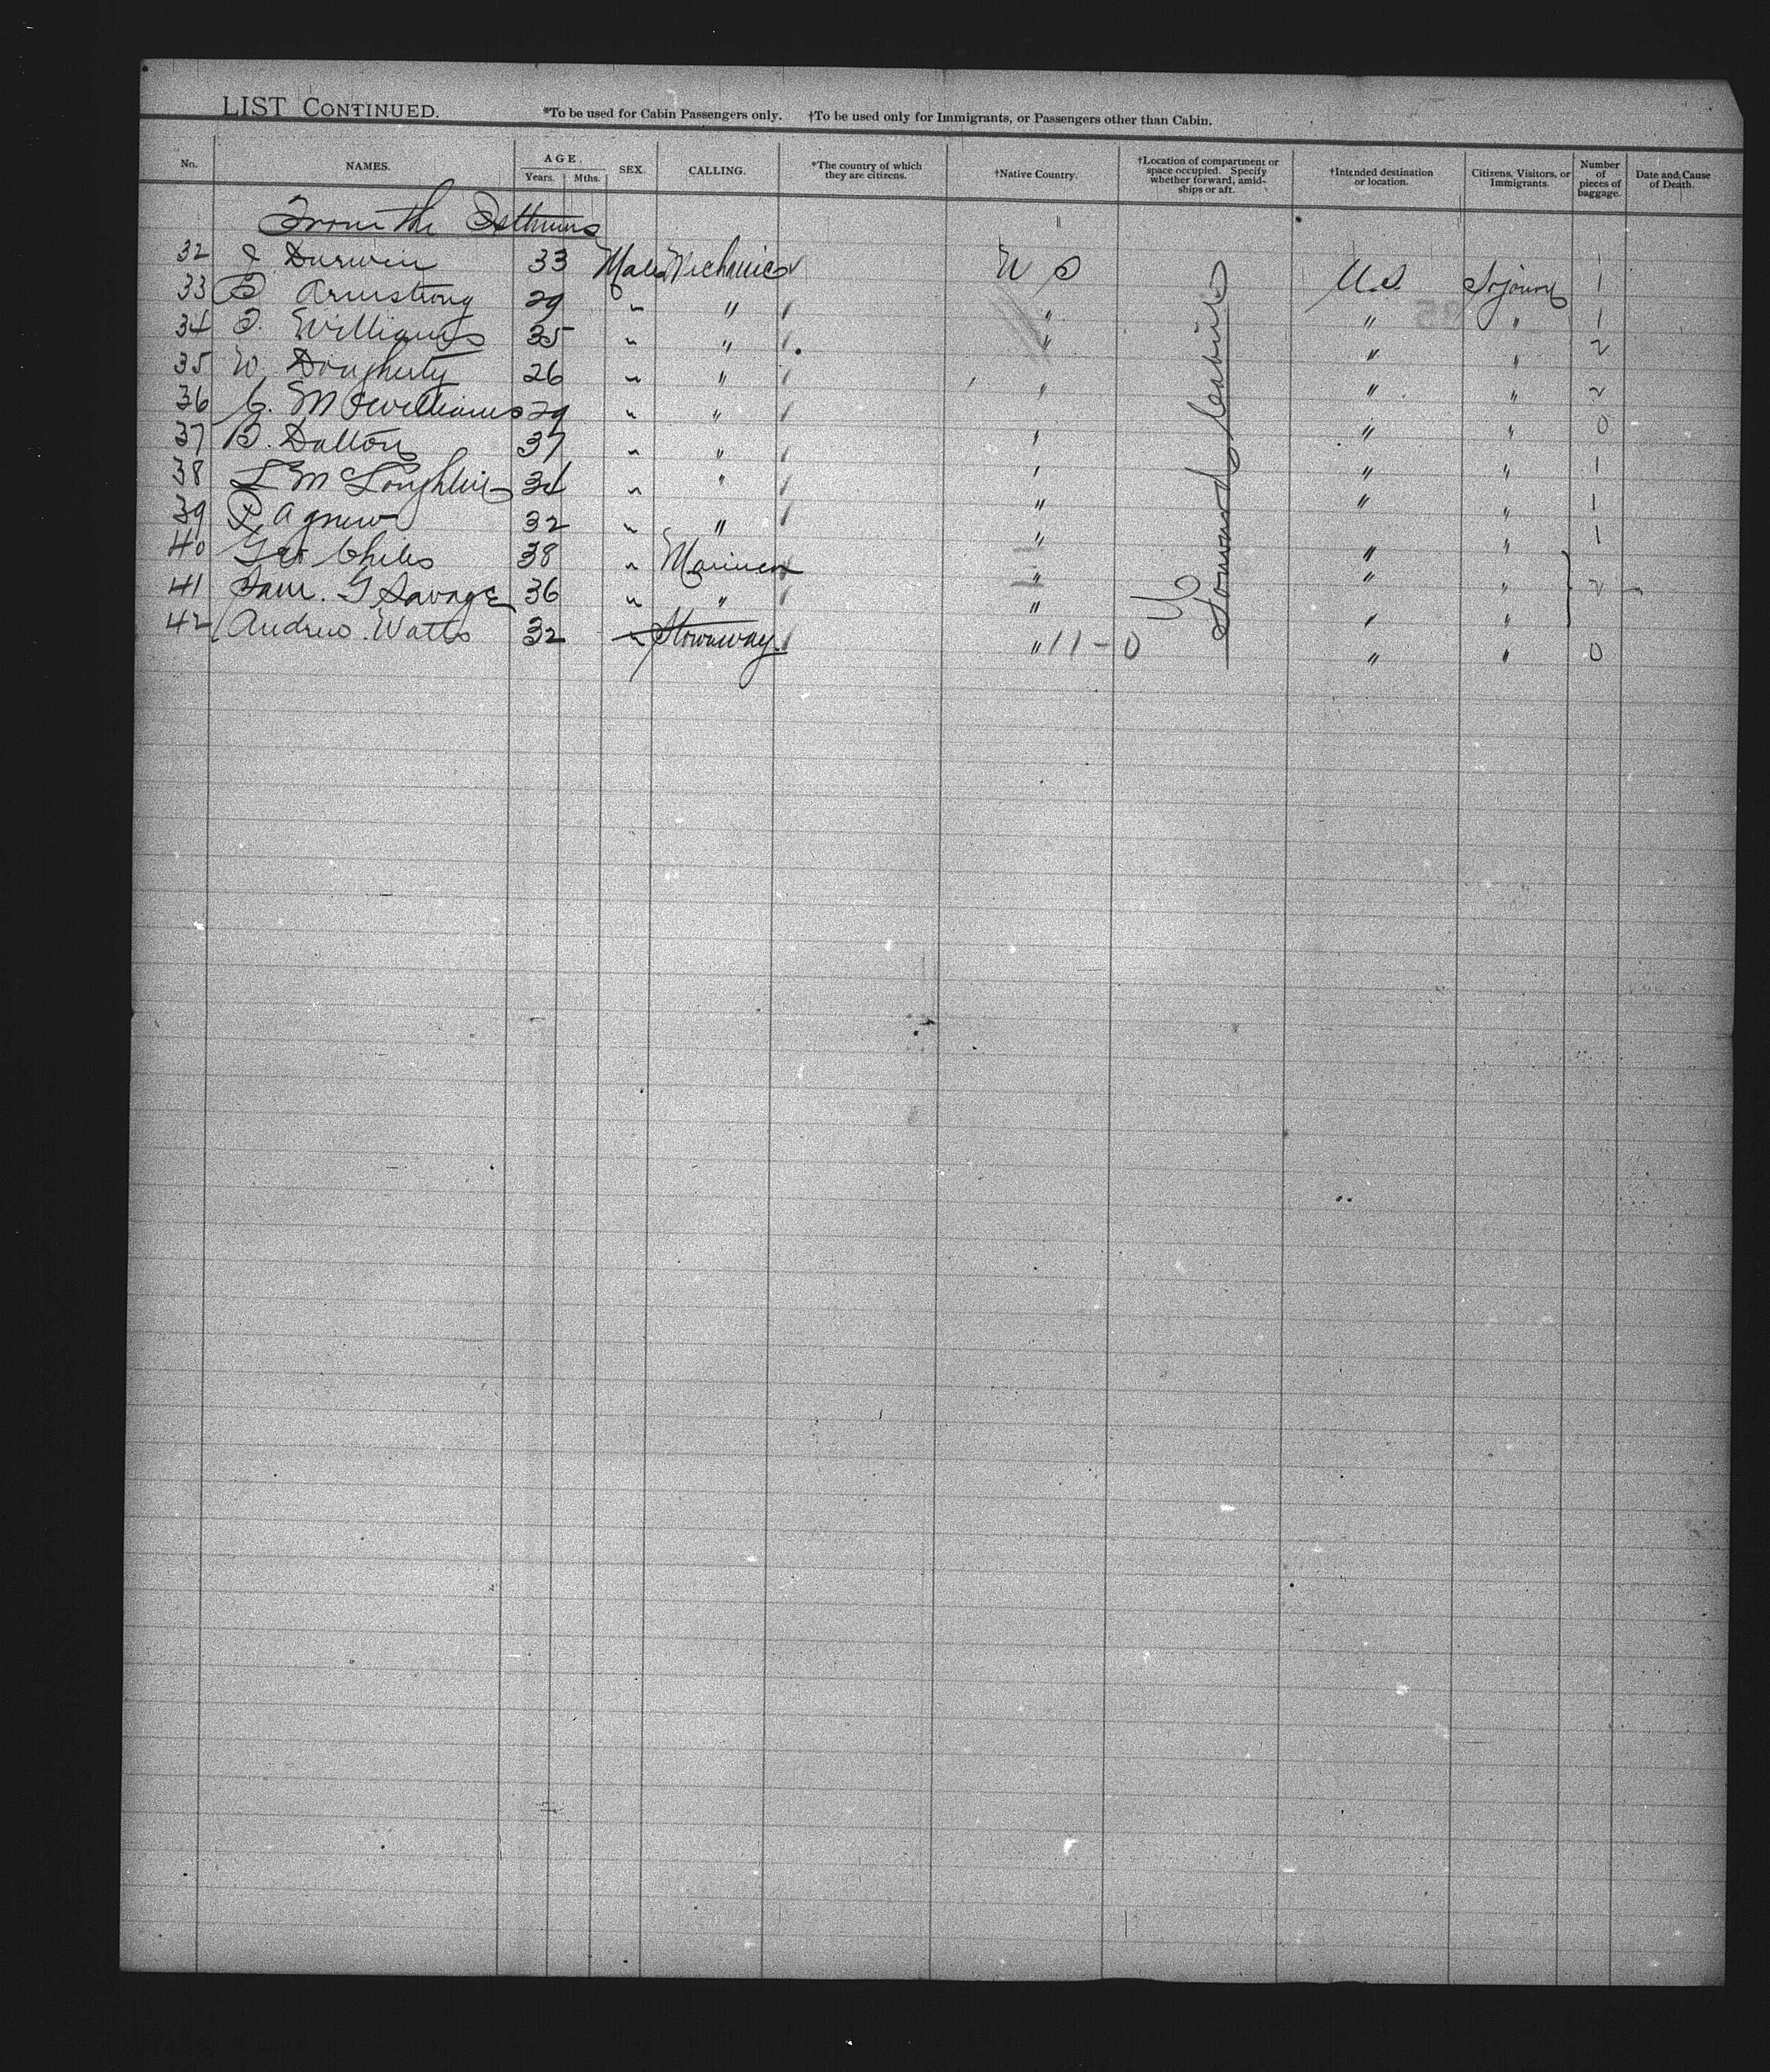 LIST CONTINUED. *To be used for Cabin Passengers only. †To be used only for Immigrants, or Passengers other than Cabin.
No. NAMES. AGE. Years. Mths. SEX. CALLING. *The country of which they are citizens. †Native Country. †Location of compartment or space occupied. Specify whether forward, amidships or aft. †Intended destination or location. Citizens, Visitors, or Immigrants. Number of pieces of baggage. Date and Cause of Death.
From the Isthmus "
32 J Durwin 33 Male Mechanic U S U.S. Sojourn 1
33 Armstrong 29 " " " " " 1
34 Williams 35 " " " " " 2
35 W. Dougherty 26 " " " " " 2
36 C. McWilliams 29 " " " " " 0
37 B. Dalton 37 " " " " " 1
38 L McLoughlin 34 " " " " " 1
39 P. Agnew 32 " " " " " 1
40 Geo Chiles 38 " Mariner " " "
41 Sam. G Savage 36 " " " " " 2
42 Andrew Watts 32 " Stowaway " 11-0 " " 0
Forward Cabin